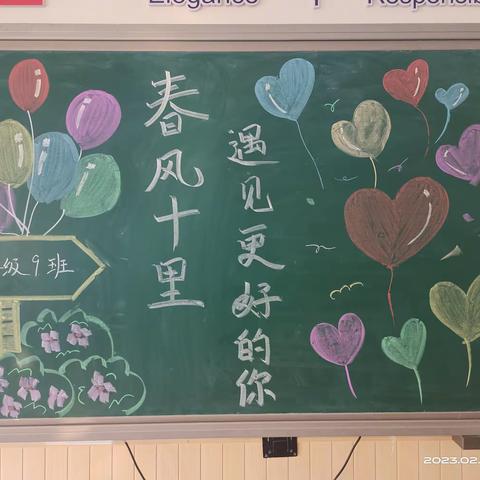 Elegance
Responsib
春风十里
遇见更好的你
级9班
2023.02